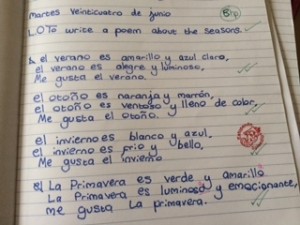 Martes veinticuatro de junio
LO To write a poem about the seasons.
el verano es amarillo y azul claro,
el verano es alegre y luminoso,
Me gusta el verano.
el otoño es naranja y marrón,
el otoño es ventoso y lleno de color,
Me gusta el otoño.
el invierno es blanco y azul,
el invierno es frio y bello,
Me gusta el invierno
La Primavera es verde y amarillo
La Primavera es luminosa y emocionante,
me gusta La primavera.